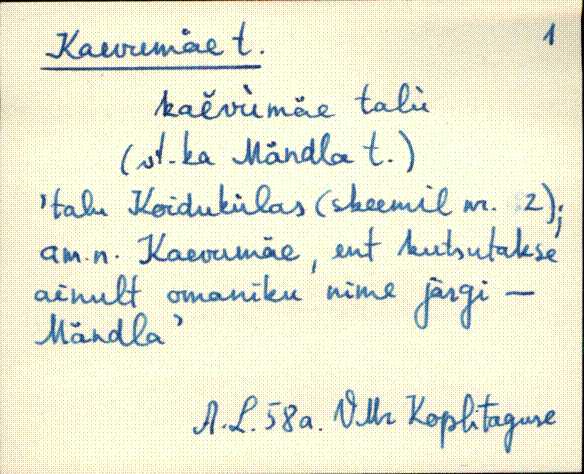 Kaevumäe t. 1
kaèvùmäe talù
(vt. ka Mändla t.)
'talu Koidukülas (skeemil nr. 2);
am. n. Kaevumäe, ent kutsutakse
ainult omaniku nime järgi —
Mändla'
A. L. 58a. VMr Koplitaguse